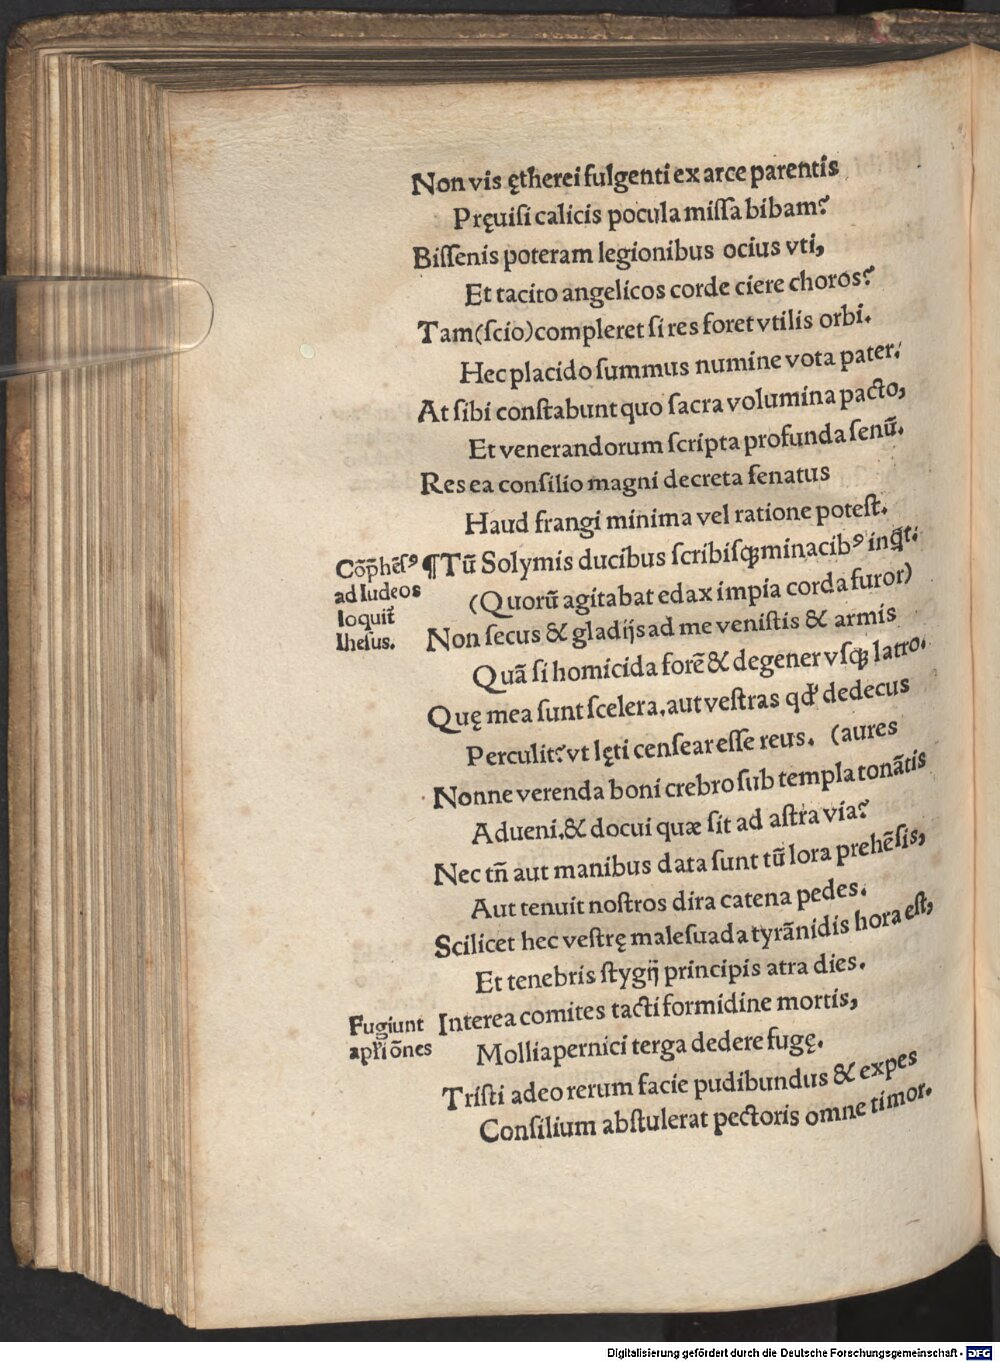 Non vis ętherei fulgenti ex arce parentis
Pręuiſi calicis pocula miſſa bibam?
Biſſenis poteram legionibus ocius vti,
Et tacito angelicos corde ciere choros?
Tam(ſcio)compleret ſi res foret vtilis orbi.
Hec placido ſummus numine vota pater.
At ſibi conſtabunt quo ſacra volumina pacto,
Et venerandorum ſcripta profunda ſenũ.
Res ea conſilio magni decreta ſenatus
Haud frangi minima vel ratione poteſt.
Cõp̃hẽſꝰ
ad Iudeos
loquit᷑
Iheſus.
¶Tũ Solymis ducibus ſcribiſqꝫ minacibꝰ inq̃t:
(Quorũ agitabat edax impia corda furor)
Non ſecus & gladijs ad me veniſtis & armis
Quã ſi homicida forẽ & degener vſqꝫ latro.
Quę mea ſunt ſcelera, aut veſtras qđ dedecus
Perculit? vt lęti cenſear eſſe reus. (aures
Nonne verenda boni crebro ſub templa tonãtis
Adueni, & docui quæ ſit ad aſtra via?
Nec tñ aut manibus data ſunt tũ lora prehẽſis,
Aut tenuit noſtros dira catena pedes.
Scilicet hec veſtrę maleſuada tyrãnidis hora eſt,
Et tenebris ſtygij principis atra dies.
Fugiunt
apľi õnes
Interea comites tacti formidine mortis,
Mollia pernici terga dedere fugę.
Triſti adeo rerum facie pudibundus & expes
Conſilium abſtulerat pectoris omne timor.
Digitalisierung gefördert durch die Deutsche Forschungsgemeinschaft - DFG